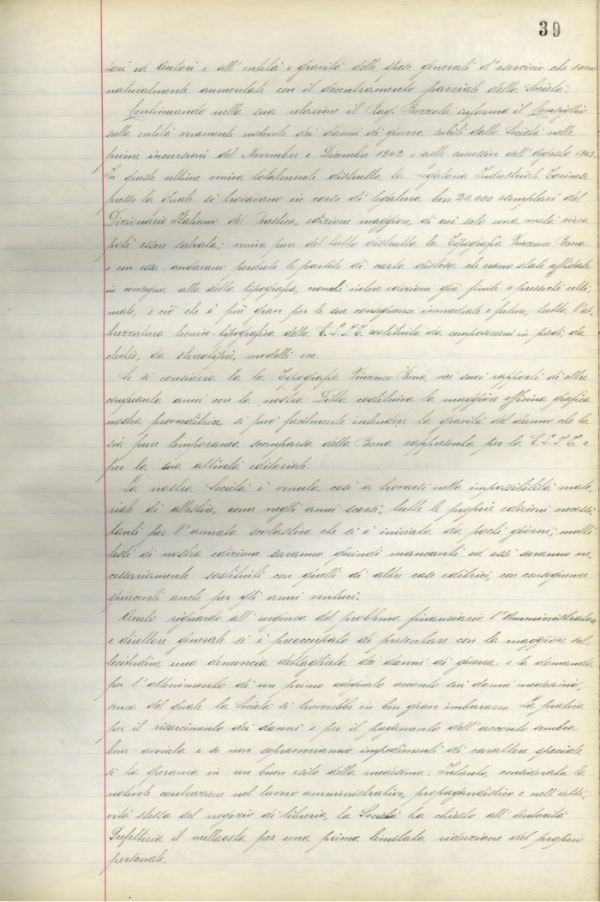 39
tori ed Autori e all'entità e gravità delle spese generali d'esercizio che sono
naturalmente aumentate con il decentramento parziale della Società.
Continuando nella sua relazione il Rag. Bozzola informa il Consiglio
sulla entità veramente notevole dei danni di guerra subiti dalla Società nelle
prime incursioni del Novembre e Dicembre 1942 e nelle successive dell'Agosto 1943.
In queste ultime veniva totalmente distrutta la Legatoria Industriale Torinese
presso la quale si trovavano in corso di legatura ben 20.000 esemplari del
Dizionario Italiano del edizione maggiore, di cui solo una metà circa
potè essere salvata; veniva pure del tutto distrutta la Tipografia Vincenzo Bona
e con essa andavano perdute le partite di carta distesa che erano state affidate
in consegna alla detta tipografia, nonchè intere edizioni già finite o pressochè ulti-
mate, e ciò che è più grave per le sue conseguenze immediate e future, tutta l'at-
trezzatura tecnico-tipografica della costituita da composizioni in piedi, da
clichés, da stereotipie, modelli ecc.
Se si considera che la Tipografia Vincenzo Bona, nei suoi rapporti di oltre
cinquanta anni con la nostra Ditta costituiva la maggiore officina grafica
nostra provveditrice si può facilmente intendere la gravità del danno che la
sia pure temporanea scomparsa della Bona rappresenta per la e
per la sua attività editoriale.
La nostra Società è venuta così a trovarsi nella impossibilità mate-
riale di allestire, come negli anni scorsi, tutte le proprie edizioni necessi-
tanti per l'annata scolastica che si è iniziata da pochi giorni; molti
testi di nostra edizione saranno quindi mancanti ed essi saranno ne-
cessariamente sostituiti con quelli di altre case editrici, con conseguenze
spiacenti anche per gli anni venturi.
Avuto riguardo all'urgenza del problema finanziario l'Amministratore
e direttore generale si è preoccupato di presentare con la maggiore sol-
lecitudine, una denuncia dettagliata dei danni di guerra e la domanda
per l'ottenimento di un primo adeguato acconto sui danni medesimi,
senza del quale la Società si troverebbe in ben grave imbarazzo. La pratica
per il risarcimento dei danni e per il pagamento dell'acconto sembra
bene avviata e se non sopravverranno impedimenti di carattere speciale
si ha speranza in un buon esito della medesima. Intanto, considerata la
notevole contrazione nel lavoro amministrativo, propagandistico e nell'atti-
vità stessa del negozio di libreria, la Società ha chiesto all'Autorità
Prefettizia il nullaosta per una prima limitata riduzione del proprio
personale.